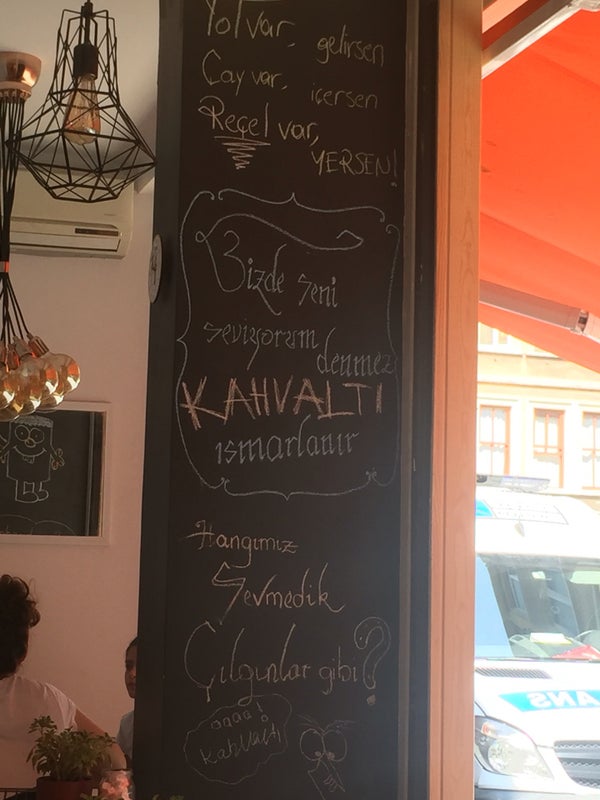 Yol var, gelirsen
Çay var, içersen
Reçel var,
YERSEN!
Bizde seni
seviyorum
denmez
KAHVALTI
ısmarlanır
Hangimiz
Sevmedik
Çılgınlar gibi?
aaaa!
KahValtı